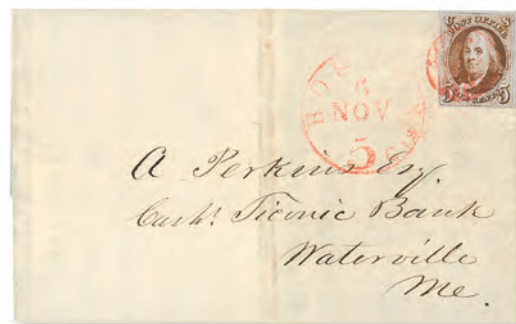 POST OFFICE
5 5
FIVE CENTS
BOSTON
6
NOV
5 cts
A Perkins Esq.
Cashr. Ticonic Bank
Waterville
Me.